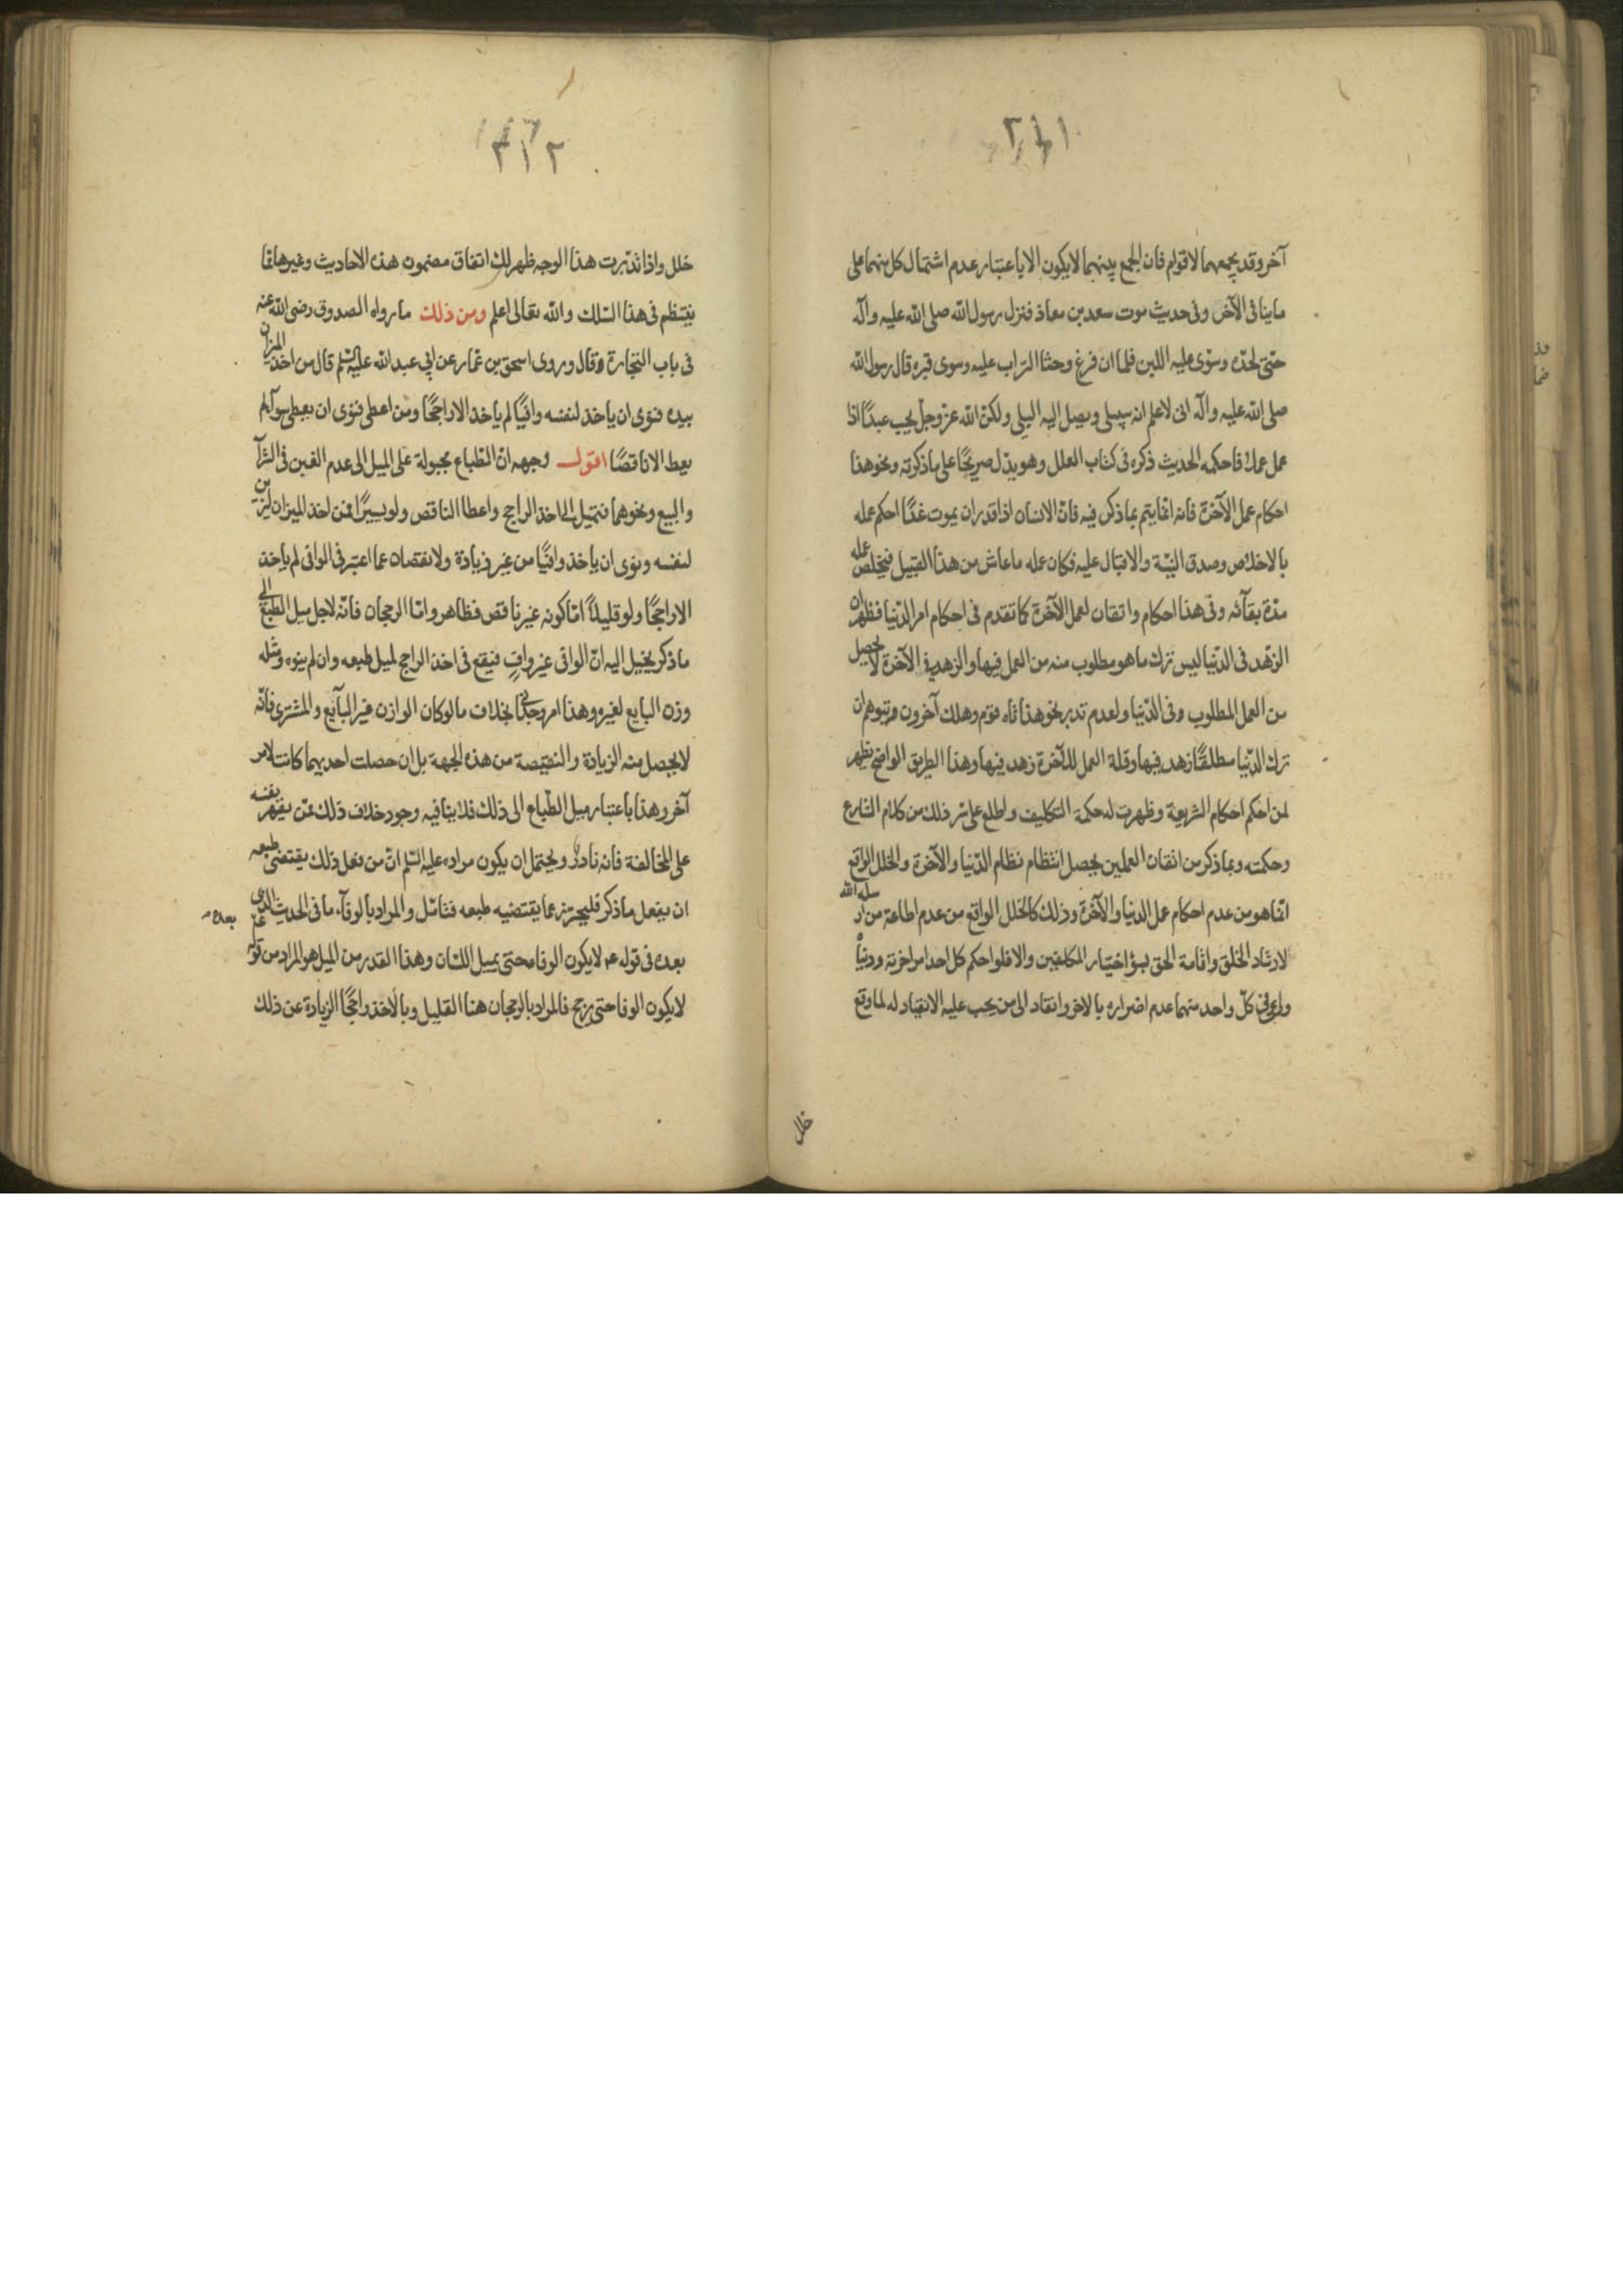 ٣١١
آخر وقد يجمعهما لاقوام فان الجمع بينهما لايكون الا باعتبار عدم اشتمال كل منهما على
ما ينافى الآخر وفى حديث موت سعد بن معاذ فنزل رسول الله صلى الله عليه وآله
حتى لحده وسوى عليه اللبن فلما ان فرغ وحثا التراب عليه وسوى قبره قال رسول الله
صلى الله عليه وآله انى لاعلم انه سيبلى ويصل اليه البلى ولكن الله عز وجل يحب عبدًا اذا
عمل عملا فاحكمه الحديث ذكره فى كتاب العلل وهو يدل صريحًا على ما ذكرته ونحو هذا
احكام عمل الآخرة فانه انما يتم بما ذكر فيه فان الانسان اذا قدر ان يموت غدًا احكم عمله
بالاخلاص وصدق النيّة والاقبال عليه فكان عمله ما عاش من هذا القبيل فيخلص عمله
مدّة بقآئه وفى هذا احكام واتقان لعمل الآخرة كما تقدم فى احكام امر الدّنيا فظهر ان
الزهد فى الدّنيا ليس ترك ما هو مطلوب منه من العمل فيها والزهد فى الآخرة لا يحصل
من العمل المطلوب وفى الدّنيا ولعدم تدبر نحو هذا تاه قوم وهلك آخرون فتوهم ان
ترك الدّنيا مطلقًا زهد فيها وقلة العمل للآخرة زهد فيها وهذا الطريق الواضح يظهر
لمن احكم احكام الشريعة وظهرت له حكمة التكليف واطلع على سر ذلك من كلام الشارع
وحكمته وبما ذكر من اتقان العملين يحصل انتظام نظام الدّنيا والآخرة والخلل الواقع
انما هو من عدم احكام عمل الدنيا والآخرة وذلك كالخلل الواقع من عدم اطاعة من ارسله الله
لارشاد الخلق واقامة الحق بسؤ اختيار المكلفين والا فلو احكم كل احد امر اخرته ودنياه
وراعى فى كلّ واحد منهما عدم اضراره بالاخر وانقاد الى من يجب عليه الانقياد له لما وقع
خلل
٣١٢
خلل واذا تدبّرت هذا الوجه ظهر لك اتفاق مضمون هذه الاحاديث وغيرها مما
ينتظم فى هذا السّلك والله تعالى اعلم ومن ذلك ما رواه الصدوق رضى الله عنه
فى باب التجارة وقال وروى اسحق بن عمّار عن ابى عبد الله عليه السّلم قال من اخذ الميزان
بيده فنوى ان ياخذ لنفسه وافيًا لم ياخذ الا راجحًا ومن اعطى فنوى ان يعطى سوآء لم
يعط الا ناقصًا اقول وجهه ان الطباع مجبولة على الميل الى عدم الغبن فى الشرآء
والبيع ونحوهما فتميل الى اخذ الراجح واعطا الناقص ولو يسيرًا فمن اخذ الميزان ليزن
لنفسه ونوى ان ياخذ وافيًا من غير زيادة ولا نقصان عما اعتبر فى الوافى لم ياخذ
الا راجحًا ولو قليلًا امّا كونه غير ناقص فظاهر واما الرجحان فانّه لاجل ميل الطبع الى
ما ذكر يخيل اليه انّ الوافى غير وافٍ فيقع فى اخذ الراجح لميل طبعه وان لم ينوه ومثله
وزن البايع لغيره وهذا امر وجدانى بخلاف ما لو كان الوازن غير البآيع والمشترى فانّه
لا يحصل منه الزيادة والنقيصة من هذه الجهة بل ان حصلت احديهما كانت لامر
آخر وهذا باعتبار ميل الطّباع الى ذلك فلا ينافيه وجود خلاف ذلك ممّن يقهر نفسه
على المخالفة فانه نادر ويحتمل ان يكون مراده عليه السّلم انّ من فعل ذلك يقتضى طبعه
ان يفعل ما ذكر فليحترز عما يقتضيه طبعه فتامّل والمراد بالوفآء ما فى الحديث الذى
بعده
بعده فى قوله عم لا يكون الوفا محتى يميل اللسان وهذا القدر من الميل هو المراد من قوله
لا يكون الوفا حتى يرجح فالمراد بالرجحان هنا القليل وبالاخذ راجحًا الزيادة عن ذلك